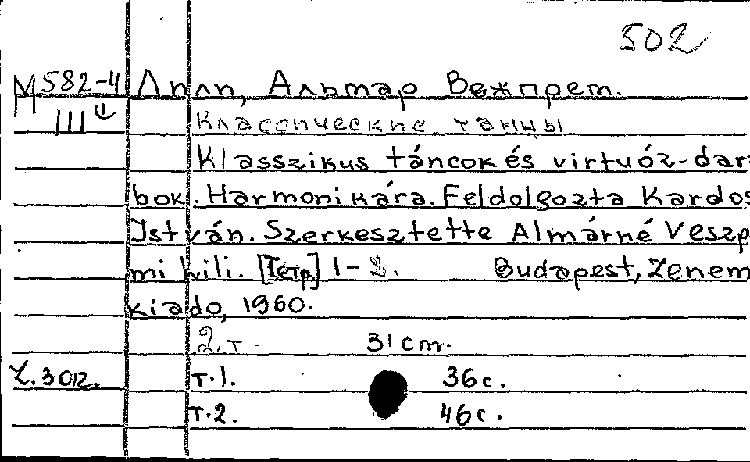 502
М 582-4 Лили, Альмар Вежпрем.
III
Классические танцы
Klasszikus táncok és virtuóz-dar
bok. Harmonikára. Feldolgozta Kardos
István. Szerkesztette Almárné Veszp
mi Lili. [Тетр] 1-2. Budapest, Zenem
kiado, 1960.
2.т. 31 cm.
Z.3012. т.1. 36с.
т.2. 46с.